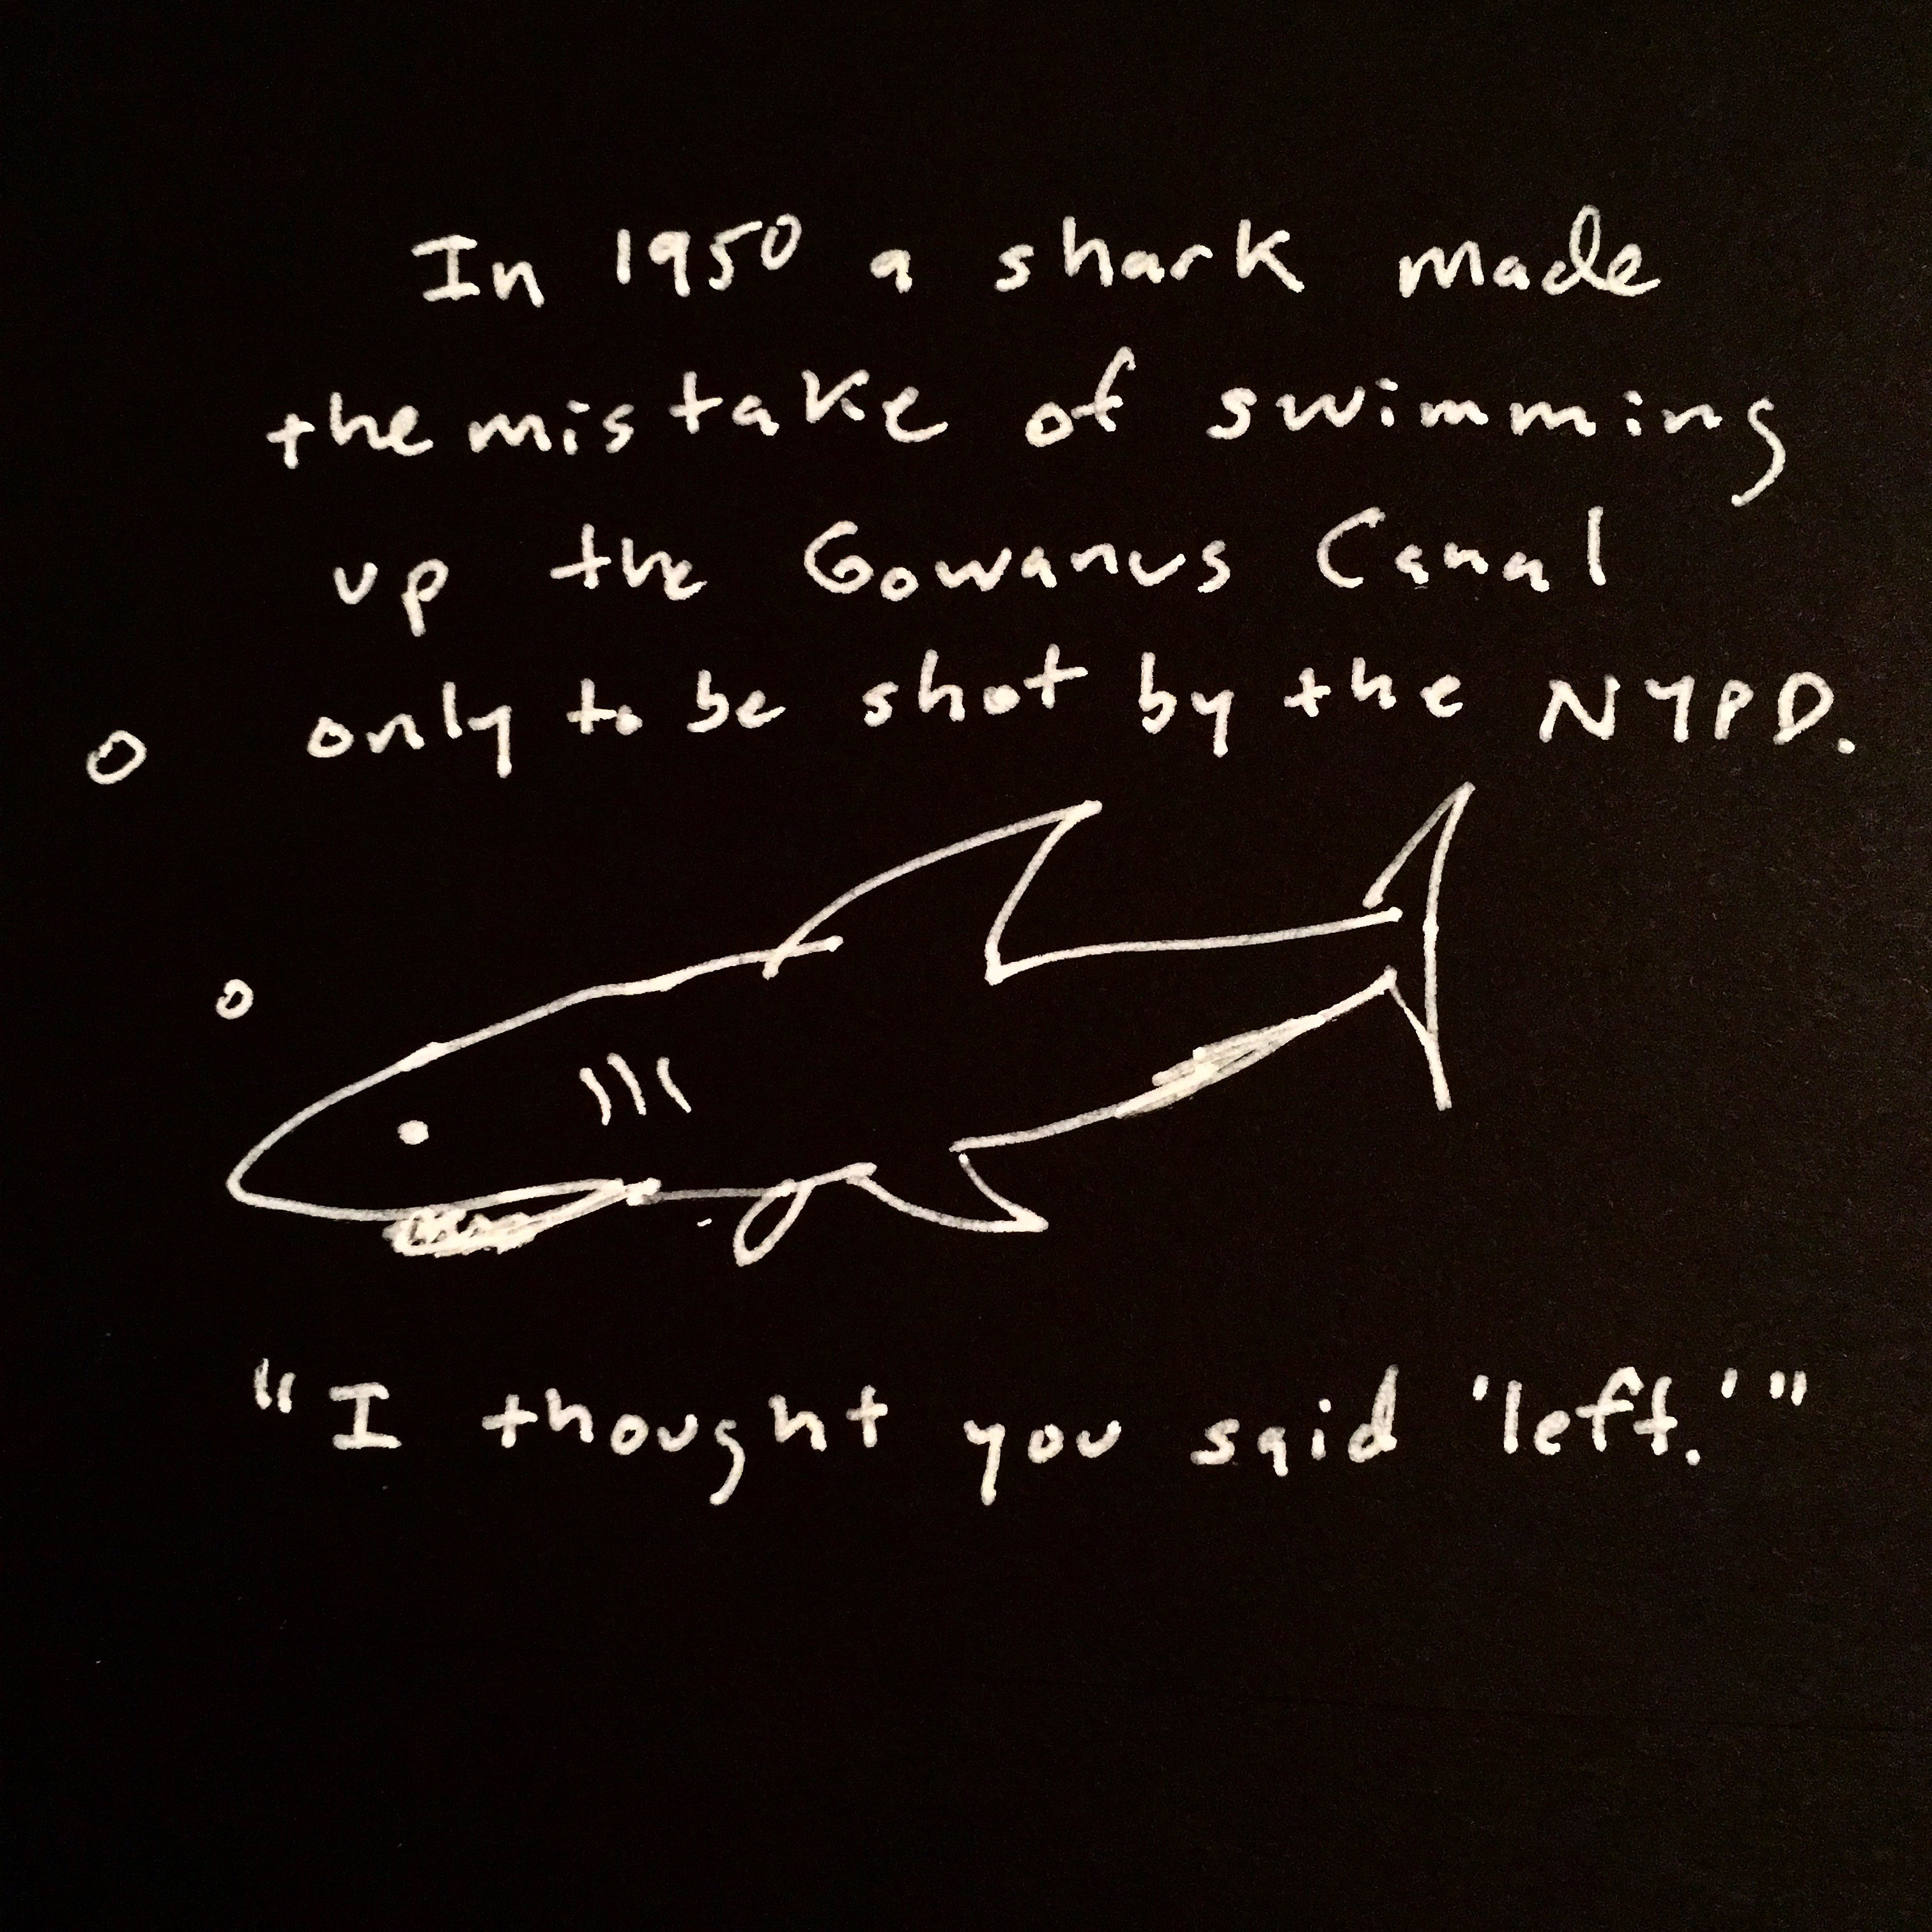 In 1950 a shark made
the mistake of swimming
up the Gowanus Canal
only to be shot by the NYPD.
"I thought you said 'left.'"